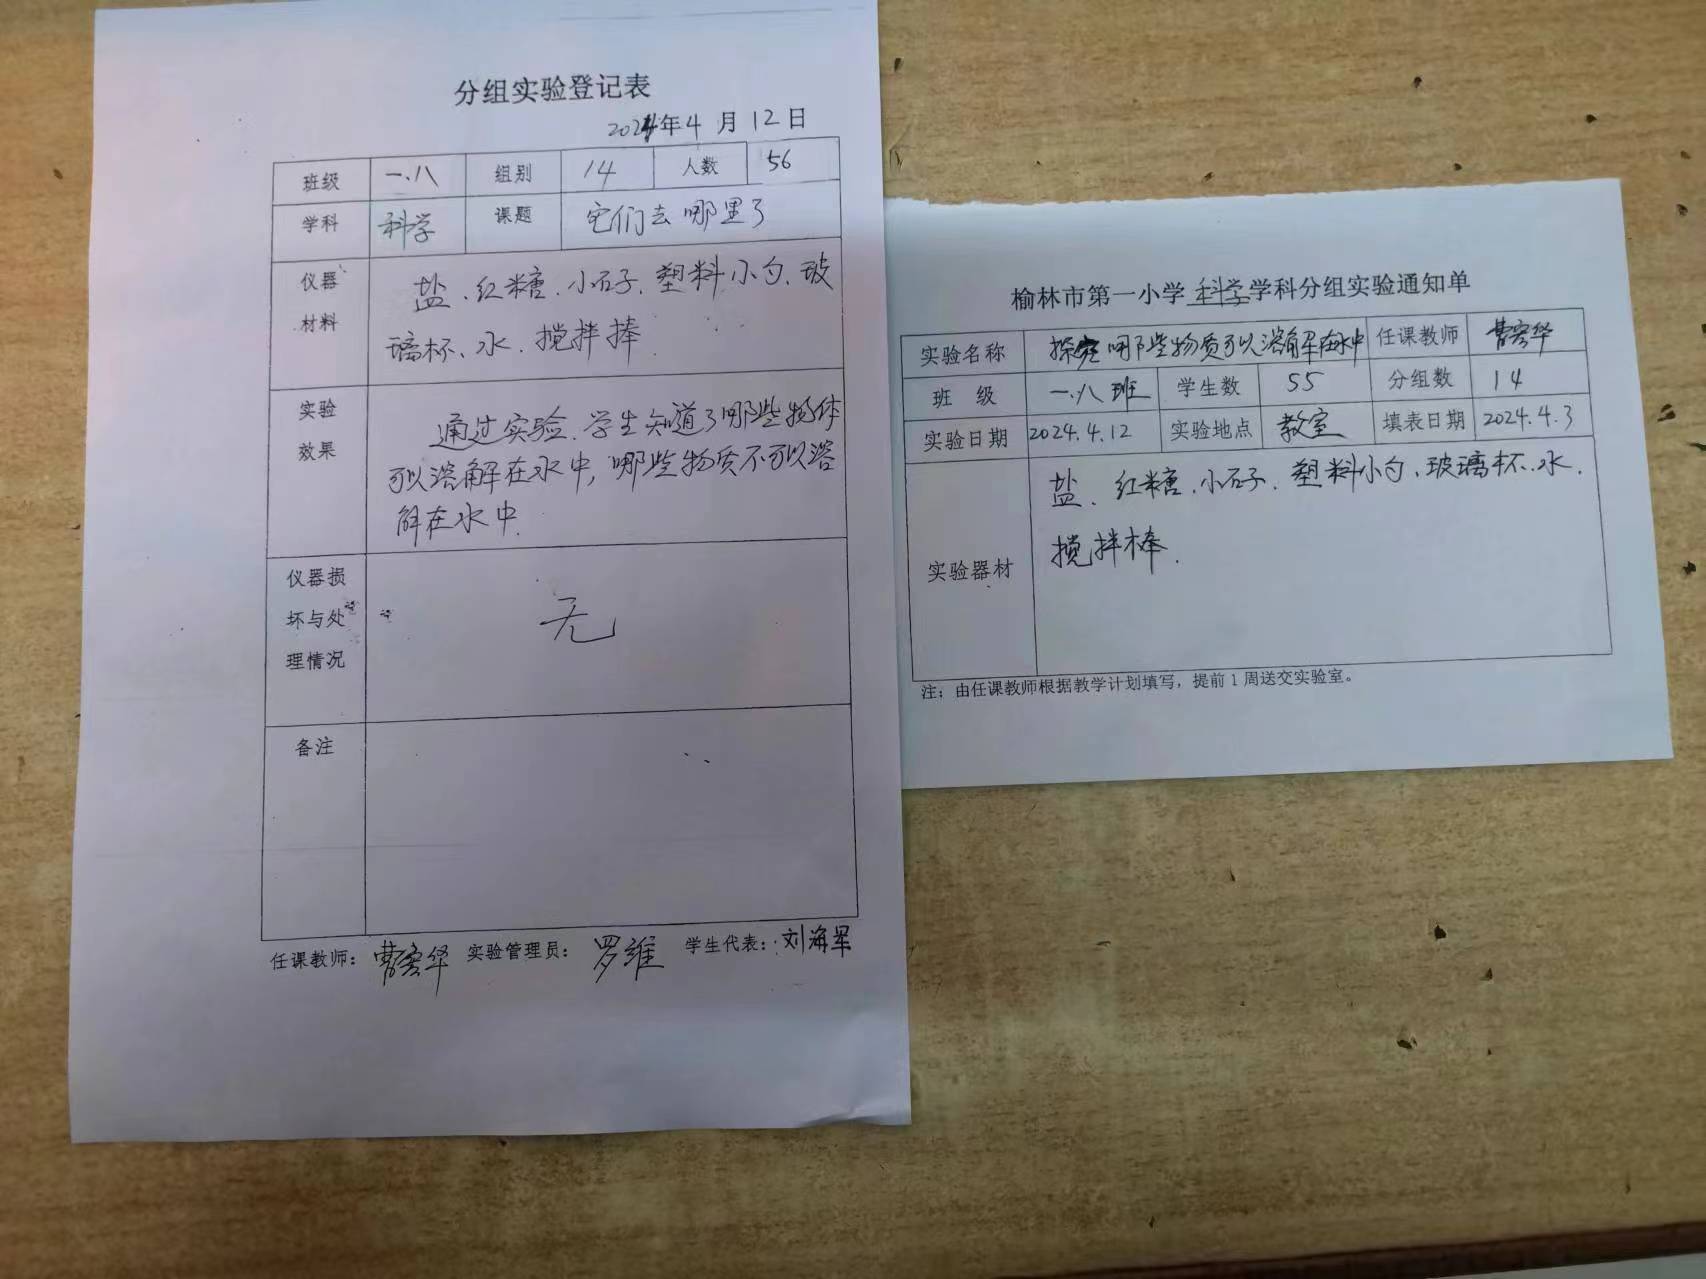 分组实验登记表
2024年4月12日
班级 一.八 组别 14 人数 56
学科 科学 课题 它们去哪里了
仪器材料 盐、红糖、小石子、塑料小勺、玻
璃杯、水、搅拌棒
实验效果 通过实验、学生知道了哪些物体
可以溶解在水中,哪些物质不可以溶
解在水中.
仪器损坏与处理情况 无
备注
任课教师: 曹宏华 实验管理员: 罗维 学生代表: 刘海军
榆林市第一小学 科学 学科分组实验通知单
实验名称 探究哪些物质可以溶解在水中 任课教师 曹宏华
班 级 一.八班 学生数 55 分组数 14
实验日期 2024.4.12 实验地点 教室 填表日期 2024.4.3
实验器材 盐、红糖、小石子、塑料小勺、玻璃杯、水、
搅拌棒.
注:由任课教师根据教学计划填写,提前1周送交实验室。